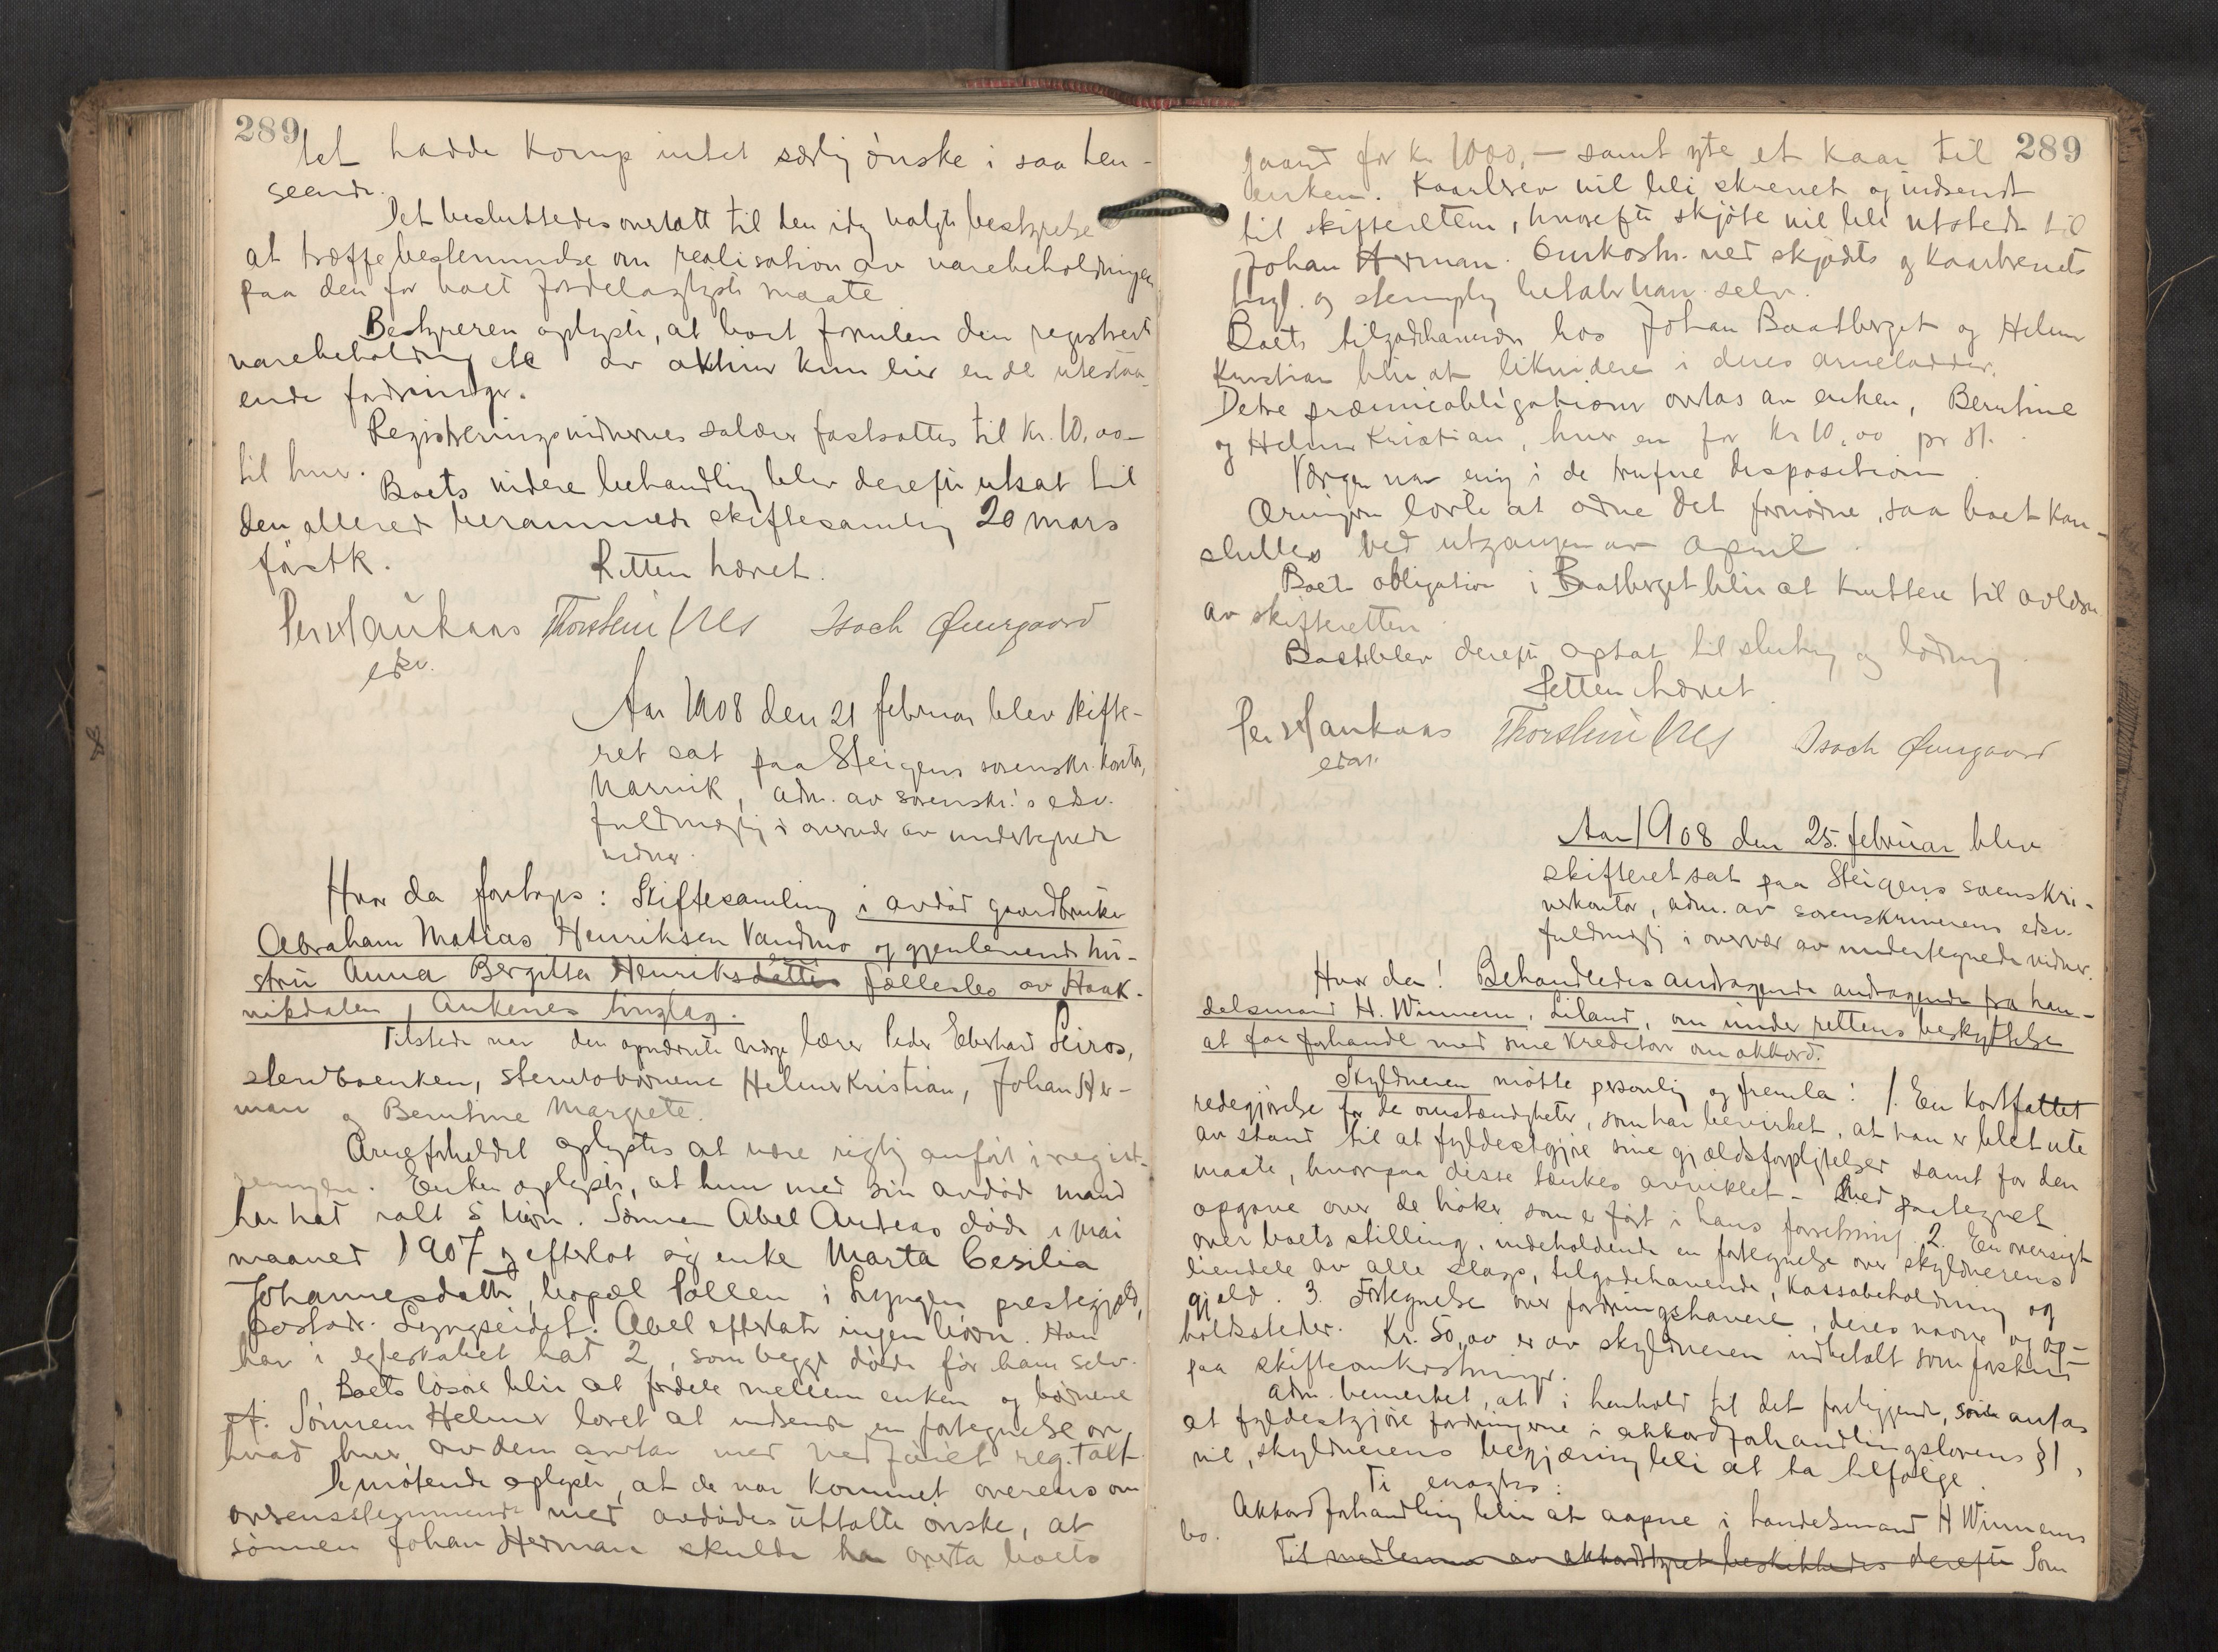 289
tet hadde Komp intet særlig ønske i saa hen-
seende.
Det besluttedes overlatt til den idag valgte bestyrelse
at træffe bestemmelse om realisation av varebeholdningen
paa den for boet fordelagtigste maate
Bestyreren oplyste, at boet foruten den registrerte
varebeholdning etc av aktiver kun eier en del utestaa-
ende fordringer.
Registreringsvidnernes salær fastsattes til kr. 10,00
til hver.
Boets videre behandling blev derefter utsat til
den allerede berammede skiftesamling 20 mars
førstk.
Retten hævet.
Per Haukaas Thorstein Isach Øvergaard
edsv.
Aar 1908 den 21 februar blev skifte-
ret sat paa Steigens sorenskr. kontor,
Narvik, adm. av sorenskr.'s edsv.
fuldmægtig i overvær av undertegnede
vidner.
Hvor da foretoges: Skiftesamling i avdød gaardbruker
Abraham Matias Henriksen Vandmo og gjenlevende hu-
stru Anna Bergitta Henriksdatter fællesbo av Haak-
vikdalen, Ankenes tinglag.
Tilstede var den opnævnte værge lærer Peder Eberhard Leiros,
stervboenken, stervbobørnene Helmer Kristian, Johan Her-
man og Berntine Margrete.
Arveforholdet oplystes at være rigtig anført i regist-
reringen. Enken oplyste, at hun med sin avdøde mand
har hat ialt 5 børn. Sønnen Abel Andreas døde i mai
maaned 1907 og efterlot sig enke Marta Cesilia
Johannesdatter, bopæl Pollen i Lyngen prestegjæld,
postadr. Lyngseidet. Abel efterlot ingen børn. Han
har i egteskabet hat 2, som begge døde før ham selv.
Boets løsøre blir at fordele mellem enken og børnene
Sønnen Helmer lovet at indsende en fortegnelse over
hvad hver av dem antar med vedføiet reg. takt
De møtende oplyste, at de var kommet overens om
overensstemmende med avdødes uttalte ønske, at
sønnen Johan Herman skulde ha overta boets
289
gaard for kr 1000,— samt yte et kaar til
enken. Kaarbrev vil bli skrevet og indsendt
til skifteretten, hvorefter skjøte vil bli utstedt til
Johan Herman. Omkostn. ved skjødets og kaarbrevets
tingl. og stempling betaler han selv.
Boets tilgodehavende hos Johan Baatberget og Helmer
Kristian blir at likvidere i deres arvelodder.
Detre præmieobligationer overtas av enken, Berntine
og Helmer Kristian, hver en for kr 10,00 pr st.
Værgen var enig i de trufne disposition
Arvingerne lovte at ordne det fornødne, saa boet kan
sluttes ved utgangen av april.
Boets obligation i Baatberget blir at kvittere til avlæsn
av skifteretten
Boet blev derefter optat til slutning og lodning
Retten hævet
Per Haukaas Thorstein Isach Øvergaard
edsv.
Aar 1908 den 25. februar blev
skifteret sat paa Steigens sorenskri-
verkontor, adm. av sorenskriverens edsv.
fuldmægtig i overvær av undertegnede vidner.
Hvor da! Behandledes andragende andragende fra han-
delsmand H. Winnem, Liland, om under rettens beskyttelse
at faa forhandle med sine kreditorer om akkord.
Skyldneren møtte personlig og fremla: 1. En kortfattet
redegjørelse for de omstændigheter, som har bevirket, at han er blet ute
av stand til at fyldestgjøre sine gjældsforpligtelser samt for den
maate, hvorpaa disse tænkes avviklet - med paategnet
opgave over de bøker som er ført i hans forretning. 2. En oversigt
over boets stilling, indeholdende en fortegnelse over skyldnerens
eiendele av alle slags, tilgodehavende, kassabeholdning og
gjæld. 3. Fortegnelse over fordringshavere, deres navne og op-
holdssteder. Kr. 50,00 er av skyldneren indbetalt som forskud
paa skifteomkostninger.
Adm. bemerket, at i henhold til det foreliggende, som antas
at fyldestgjøre fordringerne i akkordforhandlingslovens §1,
vil, skyldnerens begjæring bli at ta tilfølge.
Ti eragtes:
Akkordforhandling blir at aapne i handelsmand H Winnems
bo.
Til medlemmer av akkordstyret beskikkedes derefter Som